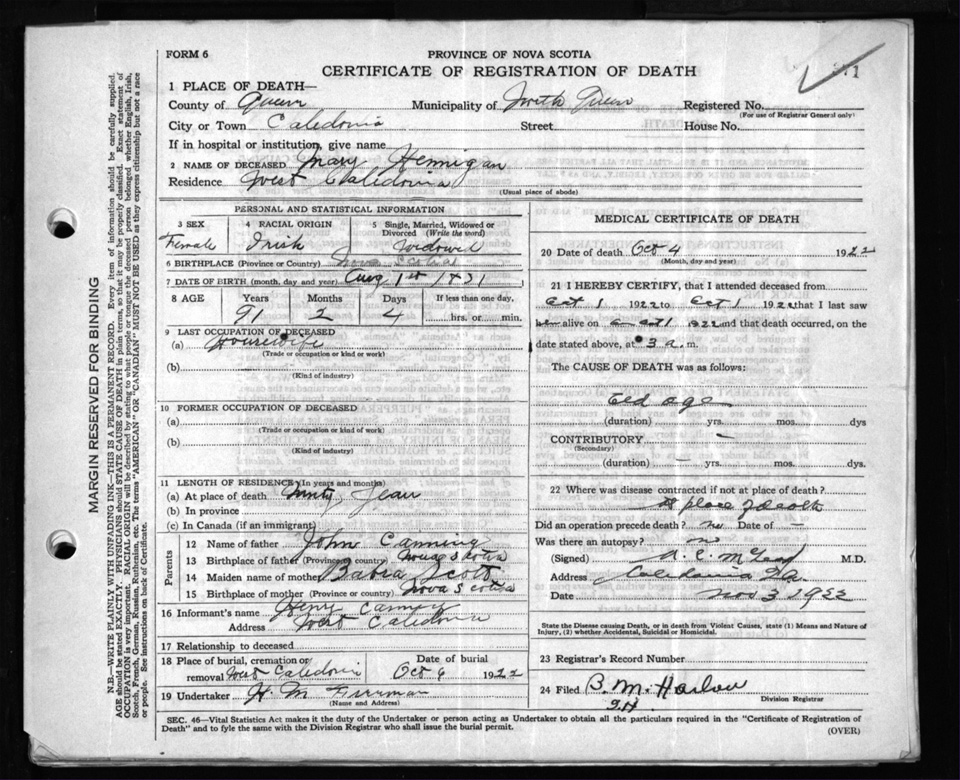 FORM 6
PROVINCE OF NOVA SCOTIA
CERTIFICATE OF REGISTRATION OF DEATH
1 PLACE OF DEATH—
County of Queen Municipality of North Queen Registered No.
(For use of Registrar General only)
City or Town Caledonia Street House No.
If in hospital or institution, give name
2 NAME OF DECEASED Mary Hennigan
Residence West Caledonia
(Usual place of abode)
PERSONAL AND STATISTICAL INFORMATION
3 SEX 4 RACIAL ORIGIN 5 Single, Married, Widowed or Divorced (Write the word)
Female Irish Widowed
6 BIRTHPLACE (Province or Country) Nova Scotia
7 DATE OF BIRTH (month, day and year) Aug 1st 1831
8 AGE Years Months Days If less than one day,
91 2 4 hrs. or min.
9 LAST OCCUPATION OF DECEASED
(a) Housewife
(Trade or occupation or kind or work)
(b)
(Kind of industry)
10 FORMER OCCUPATION OF DECEASED
(a)
(Trade or occupation or kind or work)
(b)
(Kind of industry)
11 LENGTH OF RESIDENCE (In years and months)
(a) At place of death
(b) In province
(c) In Canada (if an immigrant)
Parents
12 Name of father John Canning
13 Birthplace of father (Province or country) Nova Scotia
14 Maiden name of mother Scott
15 Birthplace of mother (Province or country) Nova Scotia
16 Informant's name Henry
Address West Caledonia
17 Relationship to deceased
18 Place of burial, cremation or removal West Caledonia Date of burial Oct 6 1922
19 Undertaker H. M.
(Name and Address)
MEDICAL CERTIFICATE OF DEATH
20 Date of Death Oct 4 1922
(Month, day and year)
21 I HEREBY CERTIFY, that I attended deceased from
Oct 1 1922 to Oct 1 1922 that I last saw
alive on Oct 1 1922 and that death occurred, on the
date stated above, at 3 a. m.
The CAUSE OF DEATH was as follows:
Old age
(duration) yrs. mos. dys
CONTRIBUTORY –
(Secondary)
(duration) – yrs. mos. dys.
22 Where was disease contracted if not at place of death?
At place of death
Did an operation precede death? no Date of –
Was there an autopsy? no
(Signed) M.D.
Address Caledonia
Date Nov 3 1922
State the Disease causing Death, or in death from Violent Causes, state (1) Means and Nature of
Injury, (2) whether Accidental, Suicidal or Homicidal.
23 Registrar's Record Number
24 Filed B. M. Harlow
Division Registrar
SEC. 46—Vital Statistics Act makes it the duty of the Undertaker or person acting as Undertaker to obtain all the particulars required in the "Certificate of Registration of
Death" and to fyle the same with the Division Registrar who shall issue the burial permit.
(OVER)
MARGIN RESERVED FOR BINDING
N.B.—WRITE PLAINLY WITH UNFADING INK—THIS IS A PERMANENT RECORD. Every item of information should be carefully supplied.
AGE should be stated EXACTLY. PHYSICIANS should STATE CAUSE OF DEATH in plain terms, so that it may be properly classified. Exact statement of
OCCUPATION is very important. RACIAL ORIGIN will be described by stating to what people or tongue the deceased person belonged whether English, Irish,
Scotch, French, German, Russian, Ruthenian, etc. The terms "AMERICAN" OR "CANADIAN" MUST NOT BE USED as they express citizenship but not a race
or people. See instructions on back of Certificate.